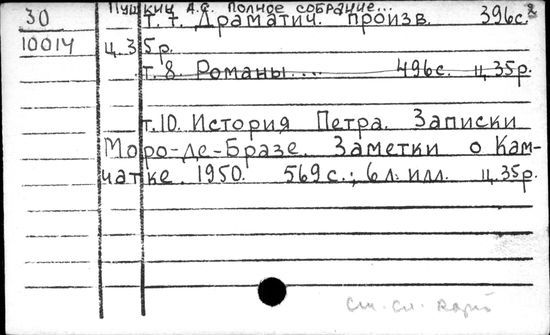 Пушкин А.С. Полное собрание...
30
т.7. Драматич. произв. 396с.
10014
ц.35р.
т.8 Романы... 496с. ц.35р.
т.10. История Петра. Записки
Моро-де-Бразе. Заметки о Кам-
чатке. 1950. 569с.; 6л. илл. ц.35р.
См. сл.